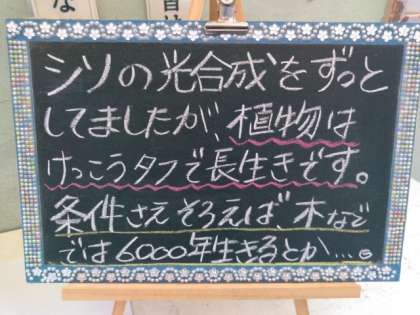 シソの光合成をずっと
してましたが、植物は
けっこうタフで長生きです。
条件さえそろえば、木など
では6000年生きるとか…。